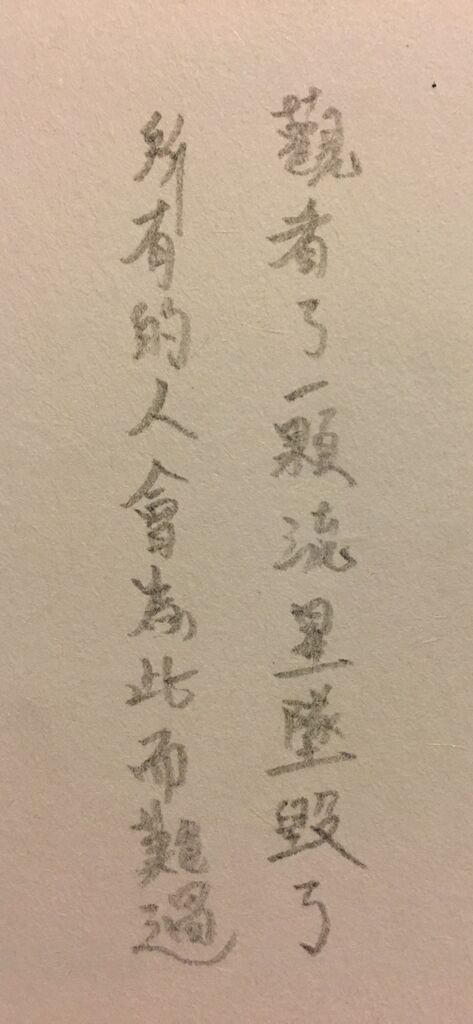 觀看了一顆流星墜毀了
所有的人會為此而難過